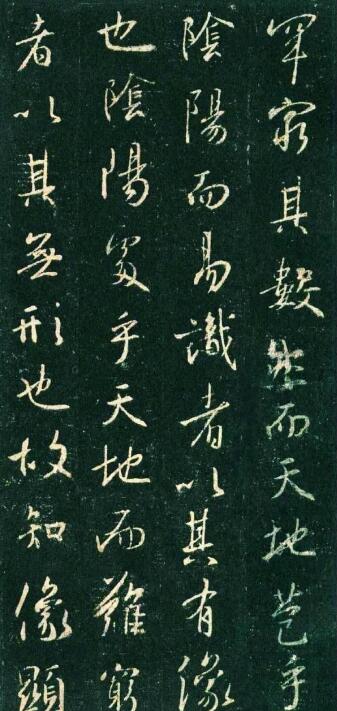 罕窮其數然而天地苞乎
陰陽而易識者以其有像
也陰陽處乎天地而難窮
者以其無形也故知像顯